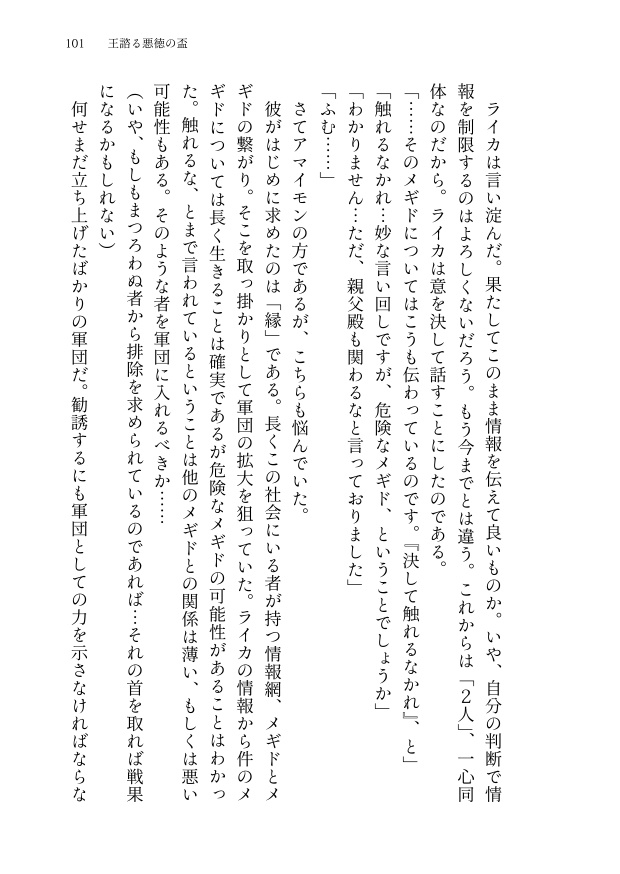 101 王諮る悪徳の盃
　ライカは言い淀んだ。果たしてこのまま情報を伝えて良いものか。いや、自分の判断で情
報を制限するのはよろしくないだろう。もう今までとは違う。これからは「２人」、一心同
体なのだから。ライカは意を決して話すことにしたのである。
「……そのメギドについてはこうも伝わっているのです。『決して触れるなかれ』、と」
「触れるなかれ…妙な言い回しですが、危険なメギド、ということでしょうか」
「わかりません…ただ、親父殿も関わるなと言っておりました」
「ふむ……」
　さてアマイモンの方であるが、こちらも悩んでいた。
　彼がはじめに求めたのは「縁」である。長くこの社会にいる者が持つ情報網、メギドとメ
ギドの繋がり。そこを取っ掛かりとして軍団の拡大を狙っていた。ライカの情報から件のメ
ギドについては長く生きることは確実であるが危険なメギドの可能性があることはわかっ
た。触れるな、とまで言われているということは他のメギドとの関係は薄い、もしくは悪い
可能性もある。そのような者を軍団に入れるべきか……
（いや、もしもまつろわぬ者から排除を求められているのであれば…それの首を取れば戦果
になるかもしれない）
　何せまだ立ち上げたばかりの軍団だ。勧誘するにも軍団としての力を示さなければならな